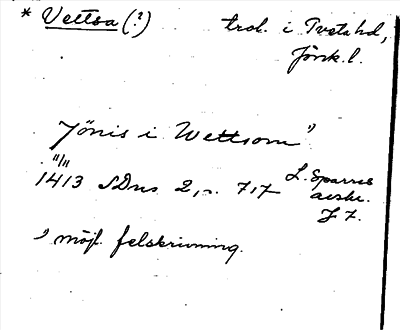 * Vettsa (?) trol. i Tveta hd,
Jönk. l.
Jönis i Wettsom"
11/11
1413 SDns 2, s. 717 L. Sparres
avskr.
J 7.
möjl. felskrivning.